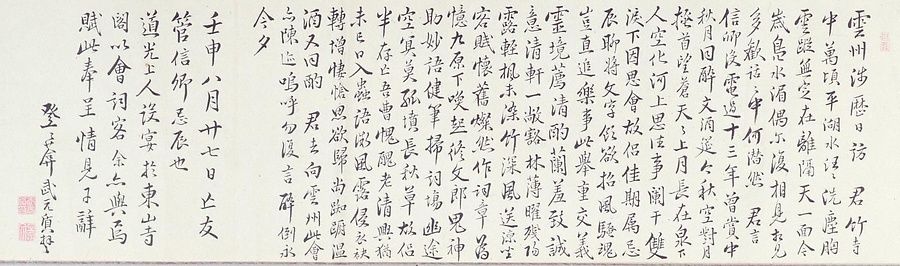 雲州涉歷日訪 君竹寺
中萬頃平湖水汪〻洗塵胸
雲蹤無定在離隔天一面今
歲水酒偶尔復相見相見
多歡話〻中何潸然 君言
信卿没電過十三年曽賞中
秋月同醉文酒筵今秋空對月
首望蒼天〻上月長在泉下
人空化河上思往事闌干雙
淚下因思會故侣佳期属忌
辰聊将文字飲欲招風騷魂
豈直追樂事此舉重交義
靈境薦清酌蘭羞致誠
意清軒一敞豁林薄曜殘陽
露輕楓未染竹深風送凉坐
客賦懷舊燦然作詞章舊
憶九原下喚起修文郎鬼神
助妙語健筆掃詞塲幽途
空冥莫孤墳長秋草故侣
半存亡吾曹愧醜老清興猶
未已日入蟲語微風露侵衣袂
轉增悽愴思欲歸尚踟蹰温
酒又同酌 君去向雲州此會
亦陳迹嗚呼勿復言醉倒永
今夕
壬申八月廿七日亡友
管信卿 忌辰也
道光上人設宴於東山寺
閣以會詞客余亦與焉
賦此奉呈情見乎辭
登〻菴武元質拜